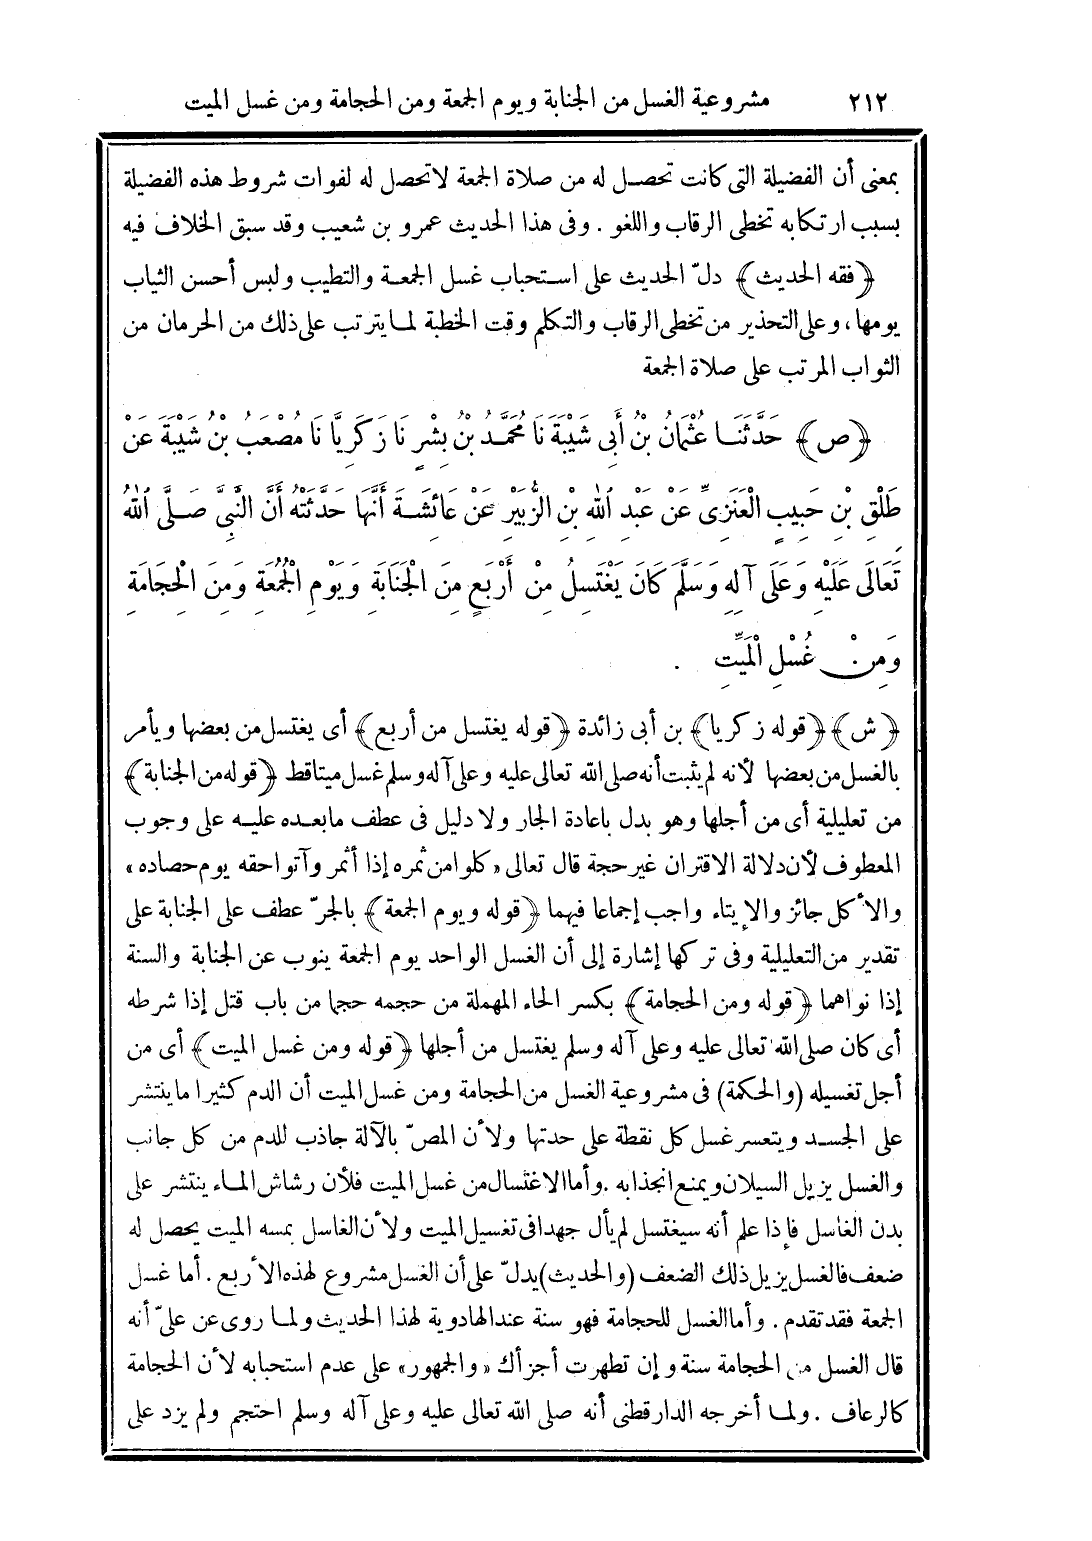 ٢١٢ مشروعية الغسل من الجنابة ويوم الجمعة ومن الحجامة ومن غسل الميت
بمعنى أن الفضيلة التى كانت تحصل له من صلاة الجمعة لاتحصل له لفوات شروط هذه الفضيلة
بسبب ارتكابه تخطى الرقاب واللغو . وفى هذا الحديث عمرو بن شعيب وقد سبق الخلاف فيه
﴿فقه الحديث﴾ دلّ الحديث على استحباب غسل الجمعة والتطيب ولبس أحسن الثياب
يومها، وعلى التحذير من تخطى الرقاب والتكلم وقت الخطبة لما يترتب على ذلك من الحرمان من
الثواب المرتب على صلاة الجمعة
﴿ص﴾ حَدَّثَنَا عُثْمَانُ بْنُ أَبِى شَيْبَةَ نَا مُحَمَّدُ بْنُ بِشْرٍ نَا زَكَرِيَّا نَا مُصْعَبُ بْنُ شَيْبَةَ عَنْ
طَلْقِ بْنِ حَبِيبٍ الْعَنَزِىِّ عَنْ عَبْدِ اللهِ بْنِ الزُّبَيْرِ عَنْ عَائِشَةَ أَنَّهَا حَدَّثَتْهُ أَنَّ النَّبِىَّ صَلَّى اللهُ
تَعَالَى عَلَيْهِ وَعَلَى آلِهِ وَسَلَّمَ كَانَ يَغْتَسِلُ مِنْ أَرْبَعٍ مِنَ الْجَنَابَةِ وَيَوْمِ الْجُمُعَةِ وَمِنَ الْحِجَامَةِ
وَمِنْ غُسْلِ الْمَيِّتِ .
﴿ش﴾ ﴿قوله زكريا﴾ بن أبى زائدة ﴿قوله يغتسل من أربع﴾ أى يغتسل من بعضها ويأمر
بالغسل من بعضها لأنه لم يثبت أنه صلى الله تعالى عليه وعلى آله وسلم غسل ميتا قط ﴿قوله من الجنابة﴾
من تعليلية أى من أجلها وهو بدل باعادة الجار ولا دليل فى عطف مابعده عليه على وجوب
المعطوف لأن دلالة الاقتران غير حجة قال تعالى «كلوا من ثمره إذا أثمر وآتوا حقه يوم حصاده»
والأكل جائز والإيتاء واجب إجماعا فيهما ﴿قوله ويوم الجمعة﴾ بالجرّ عطف على الجنابة على
تقدير من التعليلية وفى تركها إشارة إلى أن الغسل الواحد يوم الجمعة ينوب عن الجنابة والسنة
إذا نواهما ﴿قوله ومن الحجامة﴾ بكسر الحاء المهملة من حجمه حجما من باب قتل إذا شرطه
أى كان صلى الله تعالى عليه وعلى آله وسلم يغتسل من أجلها ﴿قوله ومن غسل الميت﴾ أى من
أجل تغسيله (والحكمة) فى مشروعية الغسل من الحجامة ومن غسل الميت أن الدم كثيرا ماينتشر
على الجسد ويتعسر غسل كل نقطة على حدتها ولأن المصّ بالآلة جاذب للدم من كل جانب
والغسل يزيل السيلان ويمنع انجذابه . وأما الاغتسال من غسل الميت فلأن رشاش الماء ينتشر على
بدن الغاسل فإذا علم أنه سيغتسل لم يأل جهدا فى تغسيل الميت ولأن الغاسل بمسه الميت يحصل له
ضعف فالغسل يزيل ذلك الضعف (والحديث) يدلّ على أن الغسل مشروع لهذه الأربع . أما غسل
الجمعة فقد تقدم . وأما الغسل للحجامة فهو سنة عند الهادوية لهذا الحديث ولما روى عن علىّ أنه
قال الغسل من الحجامة سنة وإن تطهرت أجزأك «والجمهور» على عدم استحبابه لأن الحجامة
كالرعاف . ولما أخرجه الدارقطنى أنه صلى الله تعالى عليه وعلى آله وسلم احتجم ولم يزد على